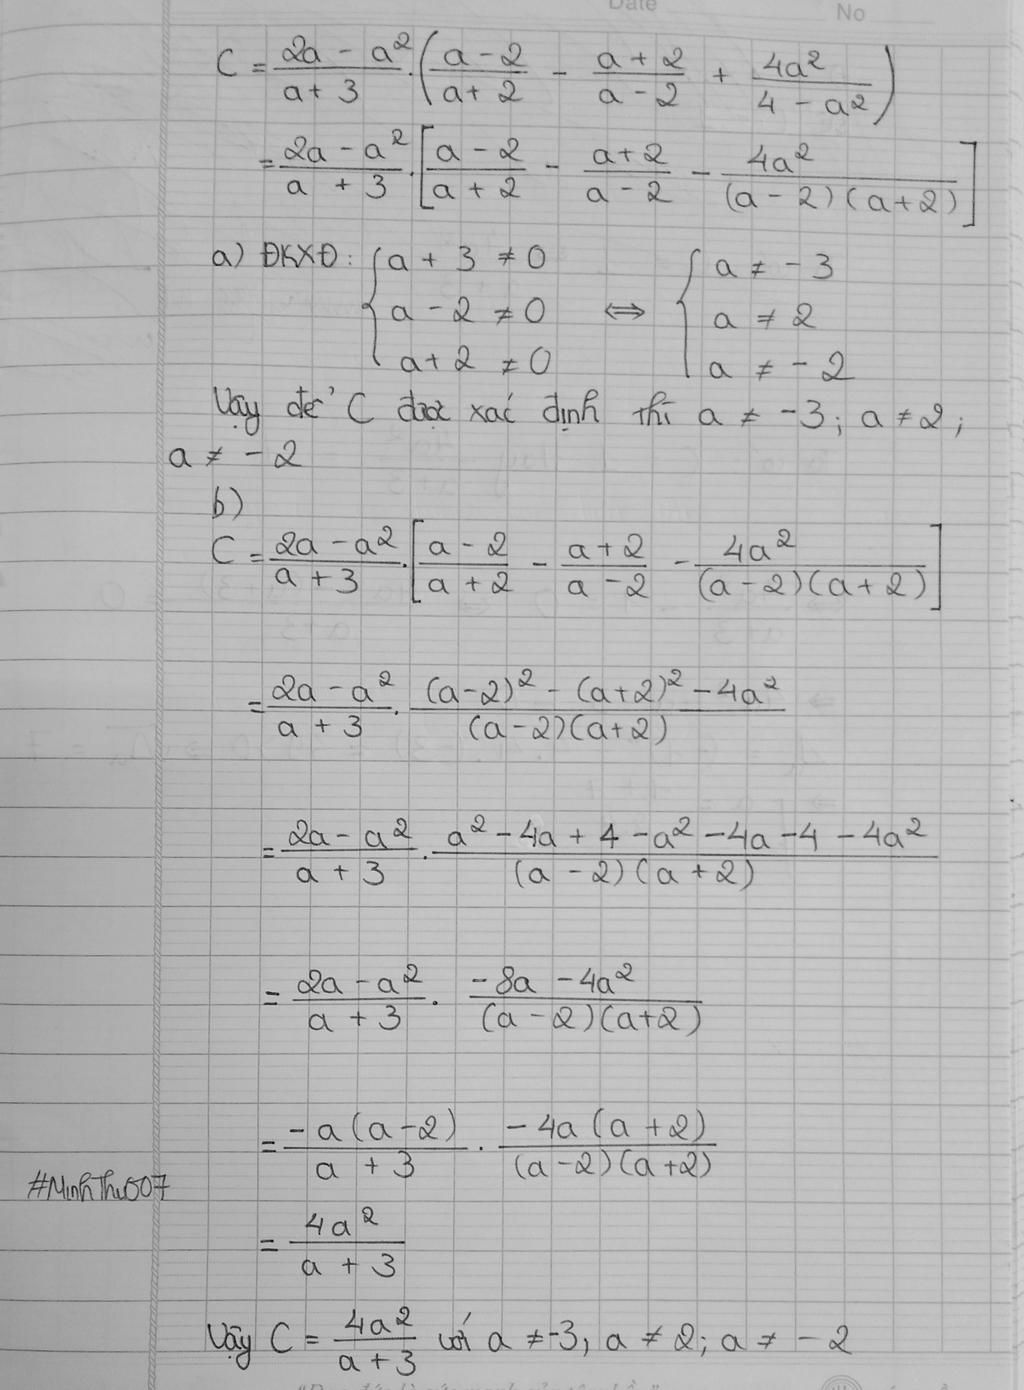 Date No
C = \frac{2a - a^2}{a + 3} . \left( \frac{a - 2}{a + 2} - \frac{a + 2}{a - 2} + \frac{4a^2}{4 - a^2} \right)
= \frac{2a - a^2}{a + 3} . \left[ \frac{a - 2}{a + 2} - \frac{a + 2}{a - 2} - \frac{4a^2}{(a - 2)(a + 2)} \right]
a) ĐKXĐ: { a + 3 ≠ 0 { a ≠ -3
a - 2 ≠ 0 ⇔ a ≠ 2
a + 2 ≠ 0 a ≠ -2
Vậy để C được xác định thì a ≠ -3; a ≠ 2;
a ≠ -2
b)
C = \frac{2a - a^2}{a + 3} . \left[ \frac{a - 2}{a + 2} - \frac{a + 2}{a - 2} - \frac{4a^2}{(a - 2)(a + 2)} \right]
= \frac{2a - a^2}{a + 3} . \frac{(a - 2)^2 - (a + 2)^2 - 4a^2}{(a - 2)(a + 2)}
= \frac{2a - a^2}{a + 3} . \frac{a^2 - 4a + 4 - a^2 - 4a - 4 - 4a^2}{(a - 2)(a + 2)}
= \frac{2a - a^2}{a + 3} . \frac{-8a - 4a^2}{(a - 2)(a + 2)}
= \frac{-a(a - 2)}{a + 3} . \frac{-4a(a + 2)}{(a - 2)(a + 2)}
#MinhThu007
= \frac{4a^2}{a + 3}
Vậy C = \frac{4a^2}{a + 3} với a ≠ -3, a ≠ 2; a ≠ -2